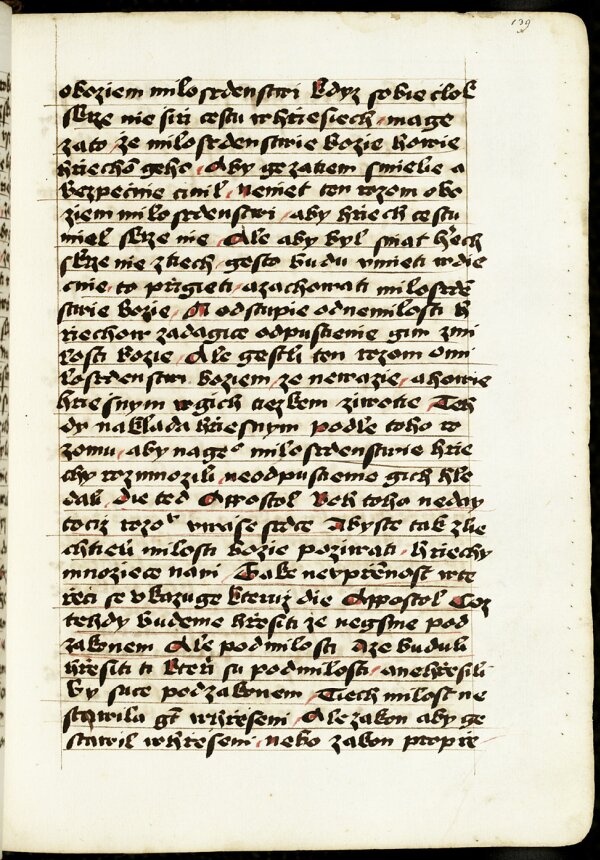 139
oboziem milosrdenstwi kdyz sobie clok
skrze nie siri cestu whriesiech mage
zato ze milosrdenstwie bozie howie
hriechom geho Aby ge zatiem smielie a
bezpecnie cinil nemiet ten rozom obo
ziem milosrdenstwi aby hriech cestu
miel skrze nie Ale aby byl sniat hrech
skrze nie ztiech gesto budu vmieti wdie
cnie to prigieti azachowati milosrde
stwie bozie A odstupie odnemilosti h
riechow zadagice odpustienie gim zmi
losti bozie Ale gestli ten rozom omi
losrdenstwi boziem ze newazie ahowie
hriesnym wgich tiezkem ziwotie Teh
dy naklada hriesnym podle toho ro
zomu aby nage milosrdenstwie hrie
chy rozmnozili neodpustieme gich hle
dali die ted Appostol Boh toho neday
tociz rozo wwase srdce Abyste tak zlie
chtieli milosti bozie pozivati hriechy
mnoziece nami Take nevprenost wte
reci se vkazuge kteruz die Appostol Coz
tehdy budeme hresiti ze negsme pod
zakonem Ale podmilosti Azebuduli
hresiti ti kteri su podmilosti anehresili
by suce podzakonem Tiech milost ne
stawila gt whreseni Alezakon aby ge
stawil whreseni nebo zakon proprie